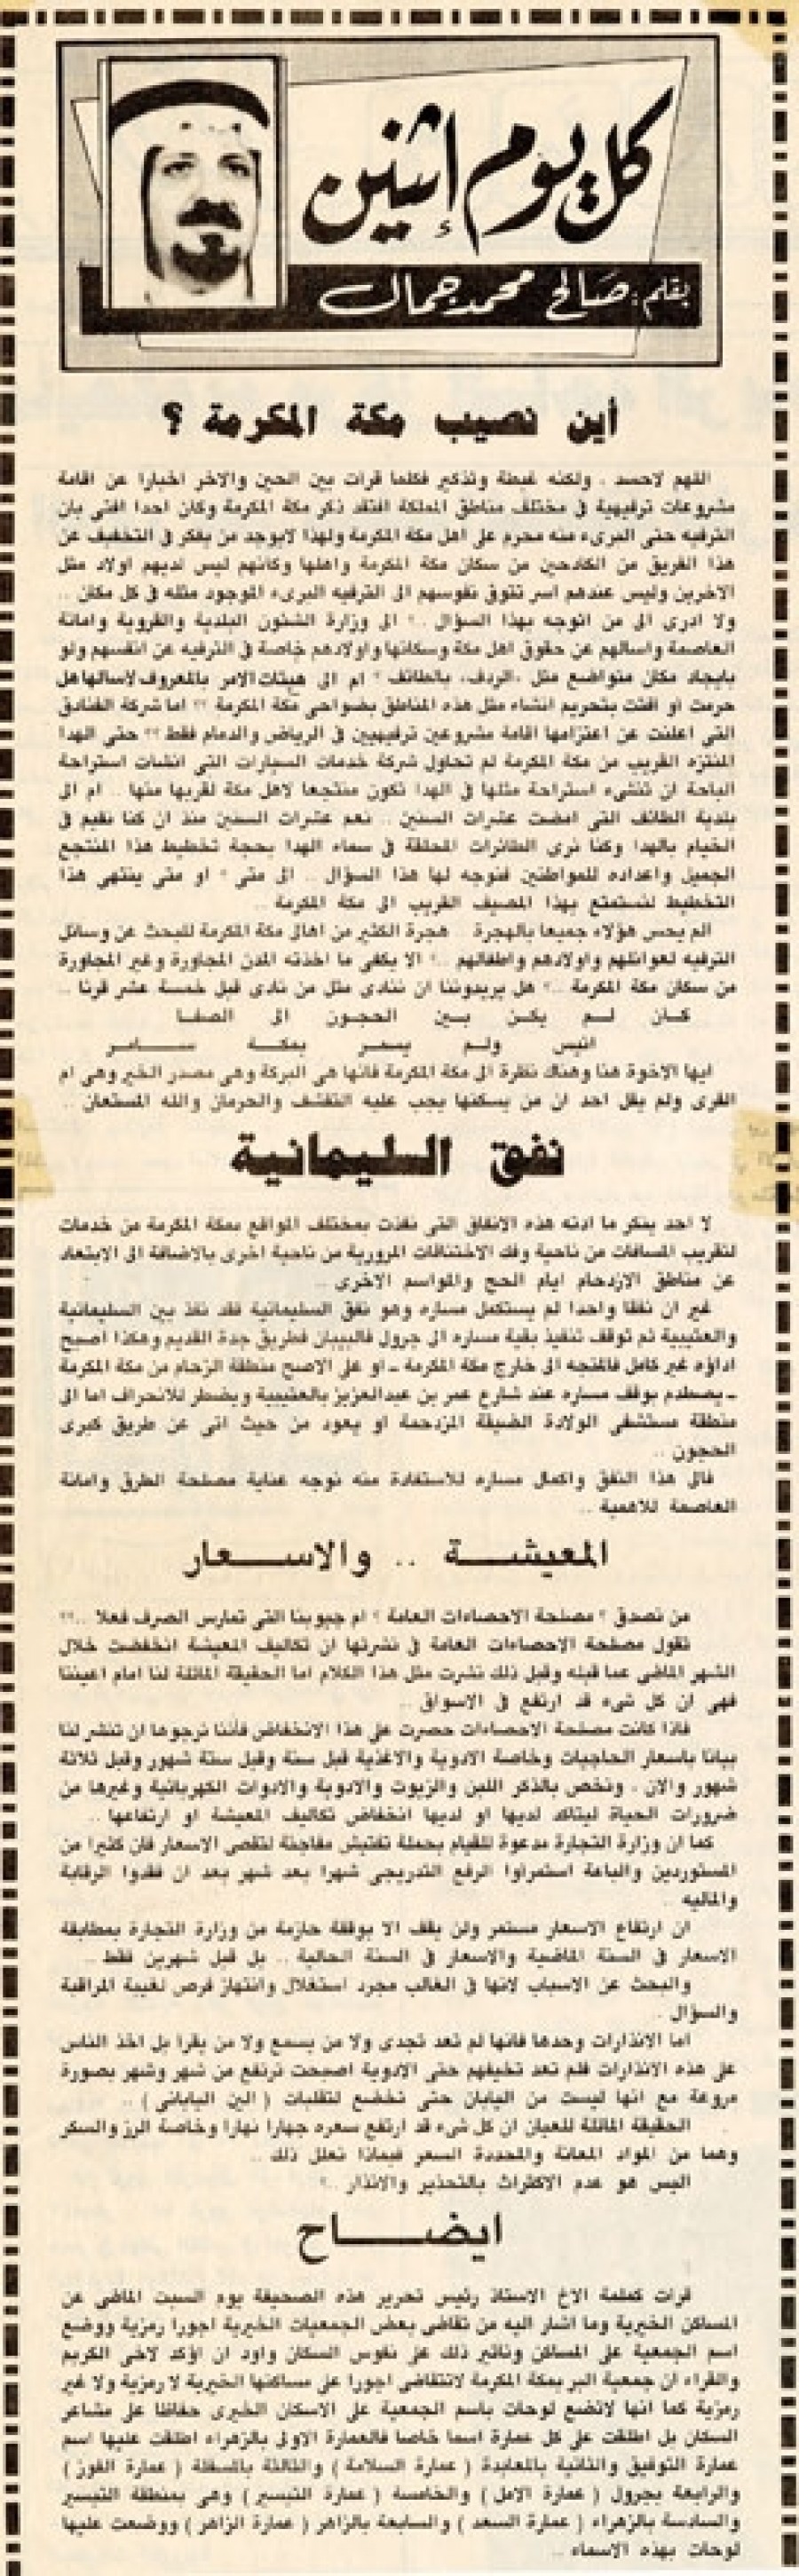 كل يوم إثنين
بقلم: صالح محمد جمال
أين نصيب مكة المكرمة ؟
اللهم لاحسد . ولكنه غبطة وتذكير فكلما قرات بين الحين والاخر اخبارا عن اقامة
مشروعات ترفيهية في مختلف مناطق المملكة افتقد ذكر مكة المكرمة وكان احدا افتى بان
الترفيه حتى البرىء منه محرم على اهل مكة المكرمة ولهذا لايوجد من يفكر في التخفيف عن
هذا الفريق من الكادحين من سكان مكة المكرمة واهلها وكانهم ليس لديهم اولاد مثل
الاخرين وليس عندهم اسر تتوق نفوسهم الى الترفيه البرىء الموجود مثله في كل مكان ..
ولا ادرى الى من اتوجه بهذا السؤال ..؟ الى وزارة الشئون البلدية والقروية وامانة
العاصمة واسالهم عن حقوق اهل مكة وسكانها واولادهم خاصة في الترفيه عن انفسهم ولو
بايجاد مكان متواضع مثل «الردف» بالطائف ؟ ام الى هيئات الامر بالمعروف لاسالها هل
حرمت او افتت بتحريم انشاء مثل هذه المناطق بضواحى مكة المكرمة ؟؟ اما شركة الفنادق
التى اعلنت عن اعتزامها اقامة مشروعين ترفيهيين في الرياض والدمام فقط ؟؟ حتى الهدا
المنتزه القريب من مكة المكرمة لم تحاول شركة خدمات السيارات التى انشات استراحة
الباحة ان تنشىء استراحة مثلها في الهدا تكون منتجعا لاهل مكة لقربها منها .. ام الى
بلدية الطائف التى امضت عشرات السنين .. نعم عشرات السنين منذ ان كنا نقيم في
الخيام بالهدا وكنا نرى الطائرات المحلقة في سماء الهدا بحجة تخطيط هذا المنتجع
الجميل واعداده للمواطنين فنوجه لها هذا السؤال .. الى متى ؟ او متى ينتهى هذا
التخطيط لنستمتع بهذا المصيف القريب الى مكة المكرمة ..
الم يحس هؤلاء جميعا بالهجرة .. هجرة الكثير من اهالى مكة المكرمة للبحث عن وسائل
الترفيه لعوائلهم واولادهم واطفالهم ..؟ الا يكفى ما اخذته المدن المجاورة وغير المجاورة
من سكان مكة المكرمة ..؟ هل يريدوننا ان ننادى مثل من نادى قبل خمسة عشر قرنا ..
كـان لـم يكـن بـين الحجـون الى الصفـا
انيس ولـم يسمـر بمكـة سـامـر
ايها الاخوة هنا وهناك نظرة الى مكة المكرمة فانها هى البركة وهى مصدر الخير وهى ام
القرى ولم يقل احد ان من يسكنها يجب عليه التقشف والحرمان والله المستعان ..
نفق السليمانية
لا احد ينكر ما ادته هذه الانفاق التى نفذت بمختلف المواقع بمكة المكرمة من خدمات
لتقريب المسافات من ناحية وفك الاختناقات المرورية من ناحية اخرى بالاضافة الى الابتعاد
عن مناطق الازدحام ايام الحج والمواسم الاخرى ..
غير ان نفقا واحدا لم يستكمل مساره وهو نفق السليمانية فقد نفذ بين السليمانية
والعتيبية ثم توقف تنفيذ بقية مساره الى جرول فالبيبان فطريق جدة القديم وهكذا اصبح
اداؤه غير كامل فالمتجه الى خارج مكة المكرمة ـ او على الاصح منطقة الزحام من مكة المكرمة
ـ يصطدم بوقف مساره عند شارع عمر بن عبدالعزيز بالعتيبية ويضطر للانحراف اما الى
منطقة مستشفى الولادة الضيقة المزدحمة او يعود من حيث اتى عن طريق كبرى
الحجون ..
فالى هذا النفق واكمال مساره للاستفادة منه نوجه عناية مصلحة الطرق وامانة
العاصمة للاهمية ..
المعيشـــة .. والاســـعار
من نصدق ؟ مصلحة الاحصاءات العامة ؟ ام جيوبنا التى تمارس الصرف فعلا ..؟؟
تقول مصلحة الاحصاءات العامة في نشرتها ان تكاليف المعيشة انخفضت خلال
الشهر الماضى عما قبله وقبل ذلك نشرت مثل هذا الكلام اما الحقيقة الماثلة لنا امام اعيننا
فهى ان كل شىء قد ارتفع في الاسواق ..
فاذا كانت مصلحة الاحصاءات حصرت على هذا الانخفاض فأننا نرجوها ان تنشر لنا
بيانا باسعار الحاجيات وخاصة الادوية والاغذية قبل سنة وقبل ستة شهور وقبل ثلاثة
شهور والان . ونخص بالذكر اللبن والزيوت والادوية والادوات الكهربائية وغيرها من
ضرورات الحياة ليتاكد لديها او لدينا انخفاض تكاليف المعيشة او ارتفاعها ..
كما ان وزارة التجارة مدعوة للقيام بحملة تفتيش مفاجئة لتقصى الاسعار فان كثيرا من
المستوردين والباعة استمراوا الرفع التدريجى شهرا بعد شهر بعد ان فقدوا الرقابة
والماليه ..
ان ارتفاع الاسعار مستمر ولن يقف الا بوقفة حازمة من وزارة التجارة بمطابقة
الاسعار في السنة الماضية والاسعار في السنة الحالية .. بل قبل شهرين فقط ..
والبحث عن الاسباب لانها في الغالب مجرد استغلال وانتهاز فرص لغيبة المراقبة
والسؤال .
اما الانذارات وحدها فانها لم تعد تجدى ولا من يسمع ولا من يقرا بل اخذ الناس
على هذه الانذارات فلم تعد تخيفهم حتى الادوية اصبحت ترتفع من شهر وشهر بصورة
مروعة مع انها ليست من اليابان حتى تخضع لتقلبات ( الين اليابانى ) ..
الحقيقة الماثلة للعيان ان كل شىء قد ارتفع سعره جهارا نهارا وخاصة الرز والسكر
وهما من المواد المعانة والمحددة السعر فبماذا نعلل ذلك ..
اليس هو عدم الاكتراث بالتحذير والانذار ..؟
ايضـــاح
قرات كملمة الاخ الاستاذ رئيس تحرير هذه الصحيفة يوم السبت الماضى عن
المساكن الخيرية وما اشار اليه من تقاضى بعض الجمعيات الخيرية اجورا رمزية ووضع
اسم الجمعية على المساكن وتاثير ذلك على نفوس السكان واود ان اؤكد لاخى الكريم
والقراء ان جمعية البر بمكة المكرمة لاتتقاضى اجورا على مساكنها الخيرية لا رمزية ولا غير
رمزية كما انها لاتضع لوحات باسم الجمعية على الاسكان الخيرى حفاظا على مشاعر
السكان بل اطلقت على كل عمارة اسما خاصا فالعمارة الاولى بالزهراء اطلقت عليها اسم
عمارة التوفيق والثانية بالمعابدة ( عمارة السلامة ) والثالثة بالمسفلة ( عمارة الفوز )
والرابعة بجرول ( عمارة الامل ) والخامسة ( عمارة التيسير ) وهى بمنطقة التيسير
والسادسة بالزهراء ( عمارة السعد ) والسابعة بالزاهر ( عمارة الزاهر ) ووضعت عليها
لوحات بهذه الاسماء ..